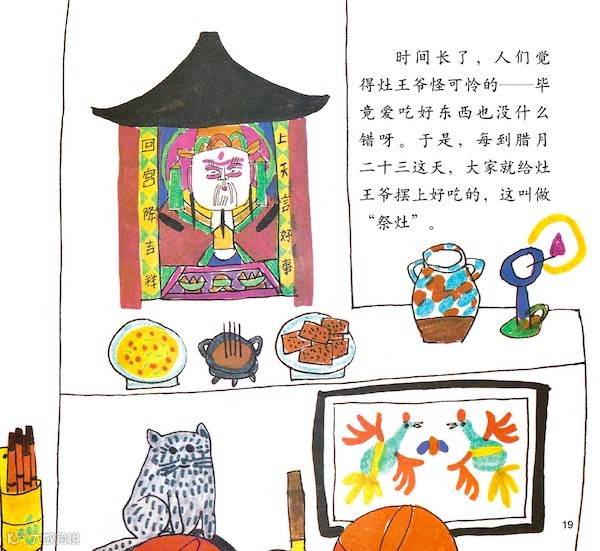 时间长了，人们觉
得灶王爷怪可怜的——毕
竟爱吃好东西也没什么
错呀。于是，每到腊月
二十三这天，大家就给灶
王爷摆上好吃的，这叫做
“祭灶”。
上天言好事
回宮降吉祥
19